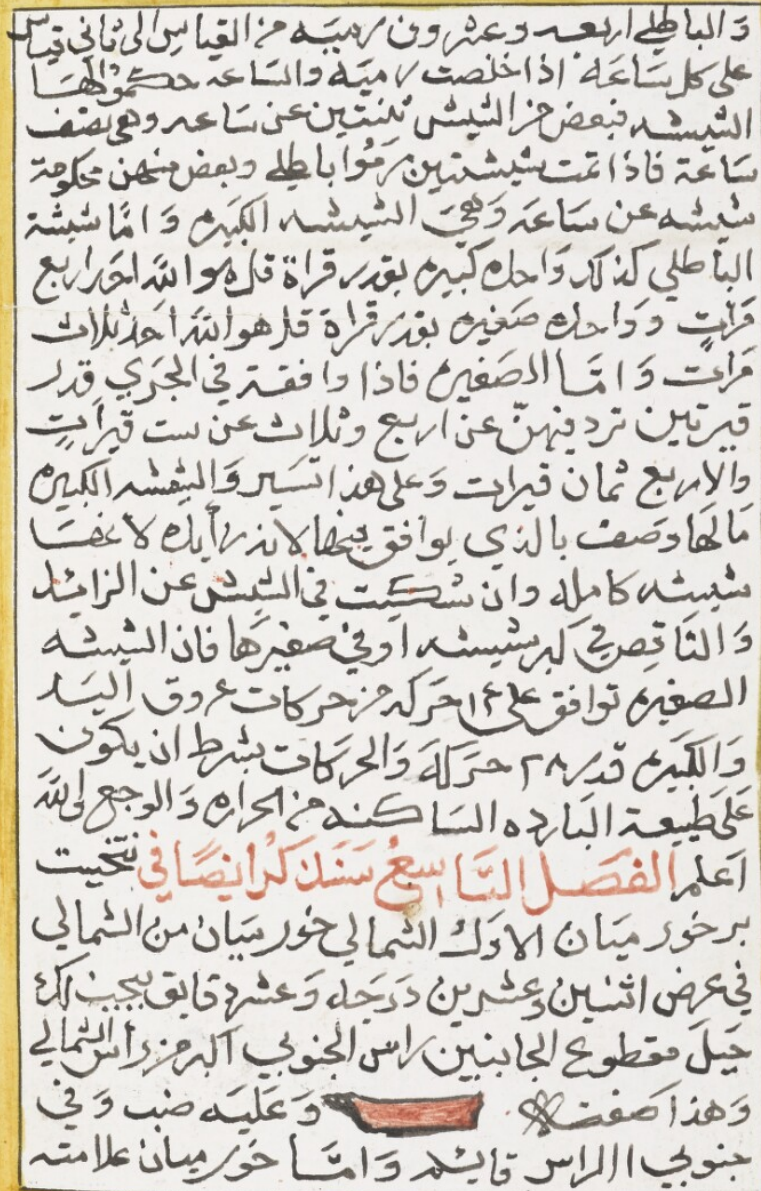 والباطلي اربعه وعشرون زميه من القياس الى ثاني قياس
على كل ساعة اذا خلصت زميه والساعه حكموا لها
الشيشه فبعض من الشيش ثنتين عن ساعه وهي نصف
ساعة فاذا تمت شيشتين رموا باطلي وبعض منهن محكومة
شيشه عن ساعه وهي الشيشه الكبيره واما شيشة
الباطلي كذلك واحده كبيره بقدر قراة قل هو الله احد اربع
مرات وواحده صغيره بقدر قراة قل هو الله احد ثلاث
مرات واما الصغيره فاذا وافقة في المجرى قدر
قيرتين ترد فيهن عن اربع وثلاث عن ست قيرات
والاربع ثمان قيرات وعلى هذا تسير والشيشه الكبيره
مالها وصف بالذي يوافق لانه
شيشه كامله وان شكيت في الشيش عن الزائد
والناقص في كبر شيشه او في صغيرها فان الشيشه
الصغيره توافق على ١٤ حركه من حركات عروق اليد
والكبيره قدر ٢٨ حركة والحركات بشرط ان يكون
على طبيعة البارده الساكنه من الحراره والوجع والله
اعلم الفصل التاسع سنذكر ايضا في نتخيت
بر خور ميان الاول الشمالي خور ميان من الشمالي
في عرض اثنين وعشرين درجه وعشر دقايق يجيب لك
جبل مقطوع الجانبين راس الجنوبي اكبر من راس الشمالي
وهذا صفته وعليه ضب وفي
جنوبي الراس قايله واما خور ميان علامته